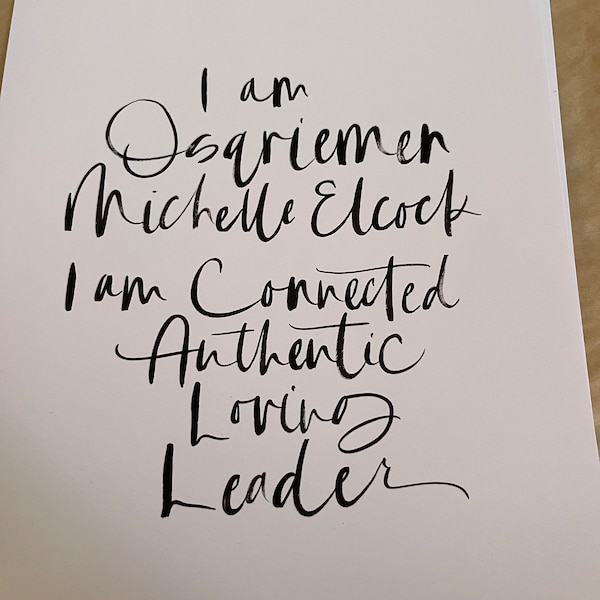 I am
Osariemen
Michelle Elcock
I am Connected
Authentic
Loving
Leader